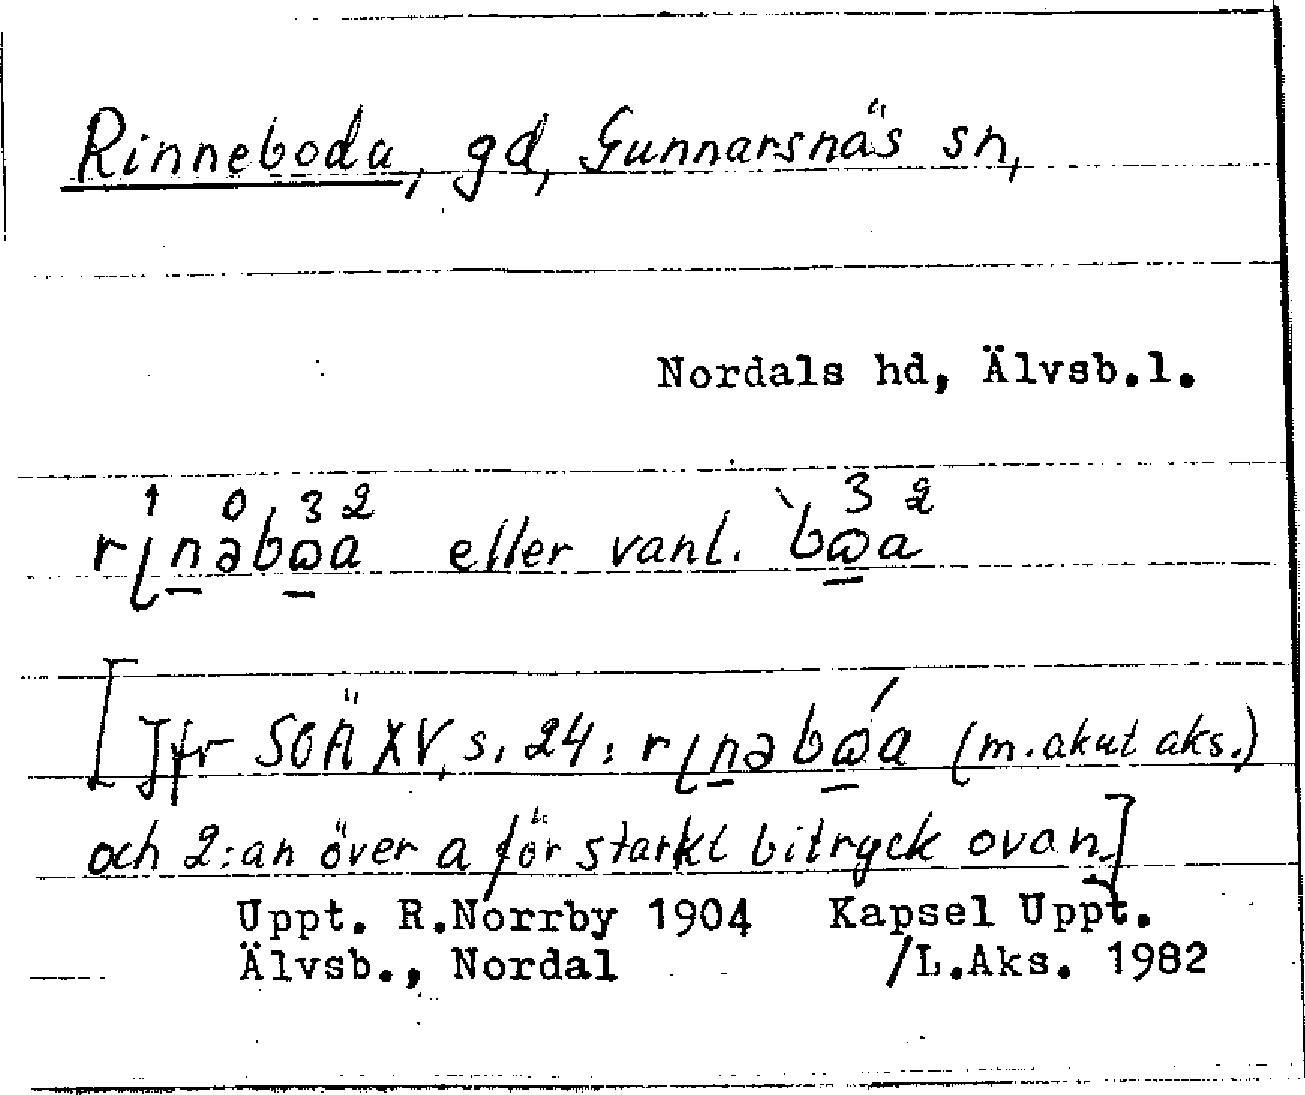 Rinneboda, gd, Gunnarsnäs sn,
Nordals hd, Älvsb.l.
1 0 3 2 3 2
rɩnəbɷa eller vanl. bɷa
[Jfr SOÄ XV, s. 24: rɩnəbɷ́a (m. akut aks.)
och 2:an över a för starkt bitryck ovan.]
Uppt. R.Norrby 1904 Kapsel Uppt.
Älvsb., Nordal /L.Aks. 1982